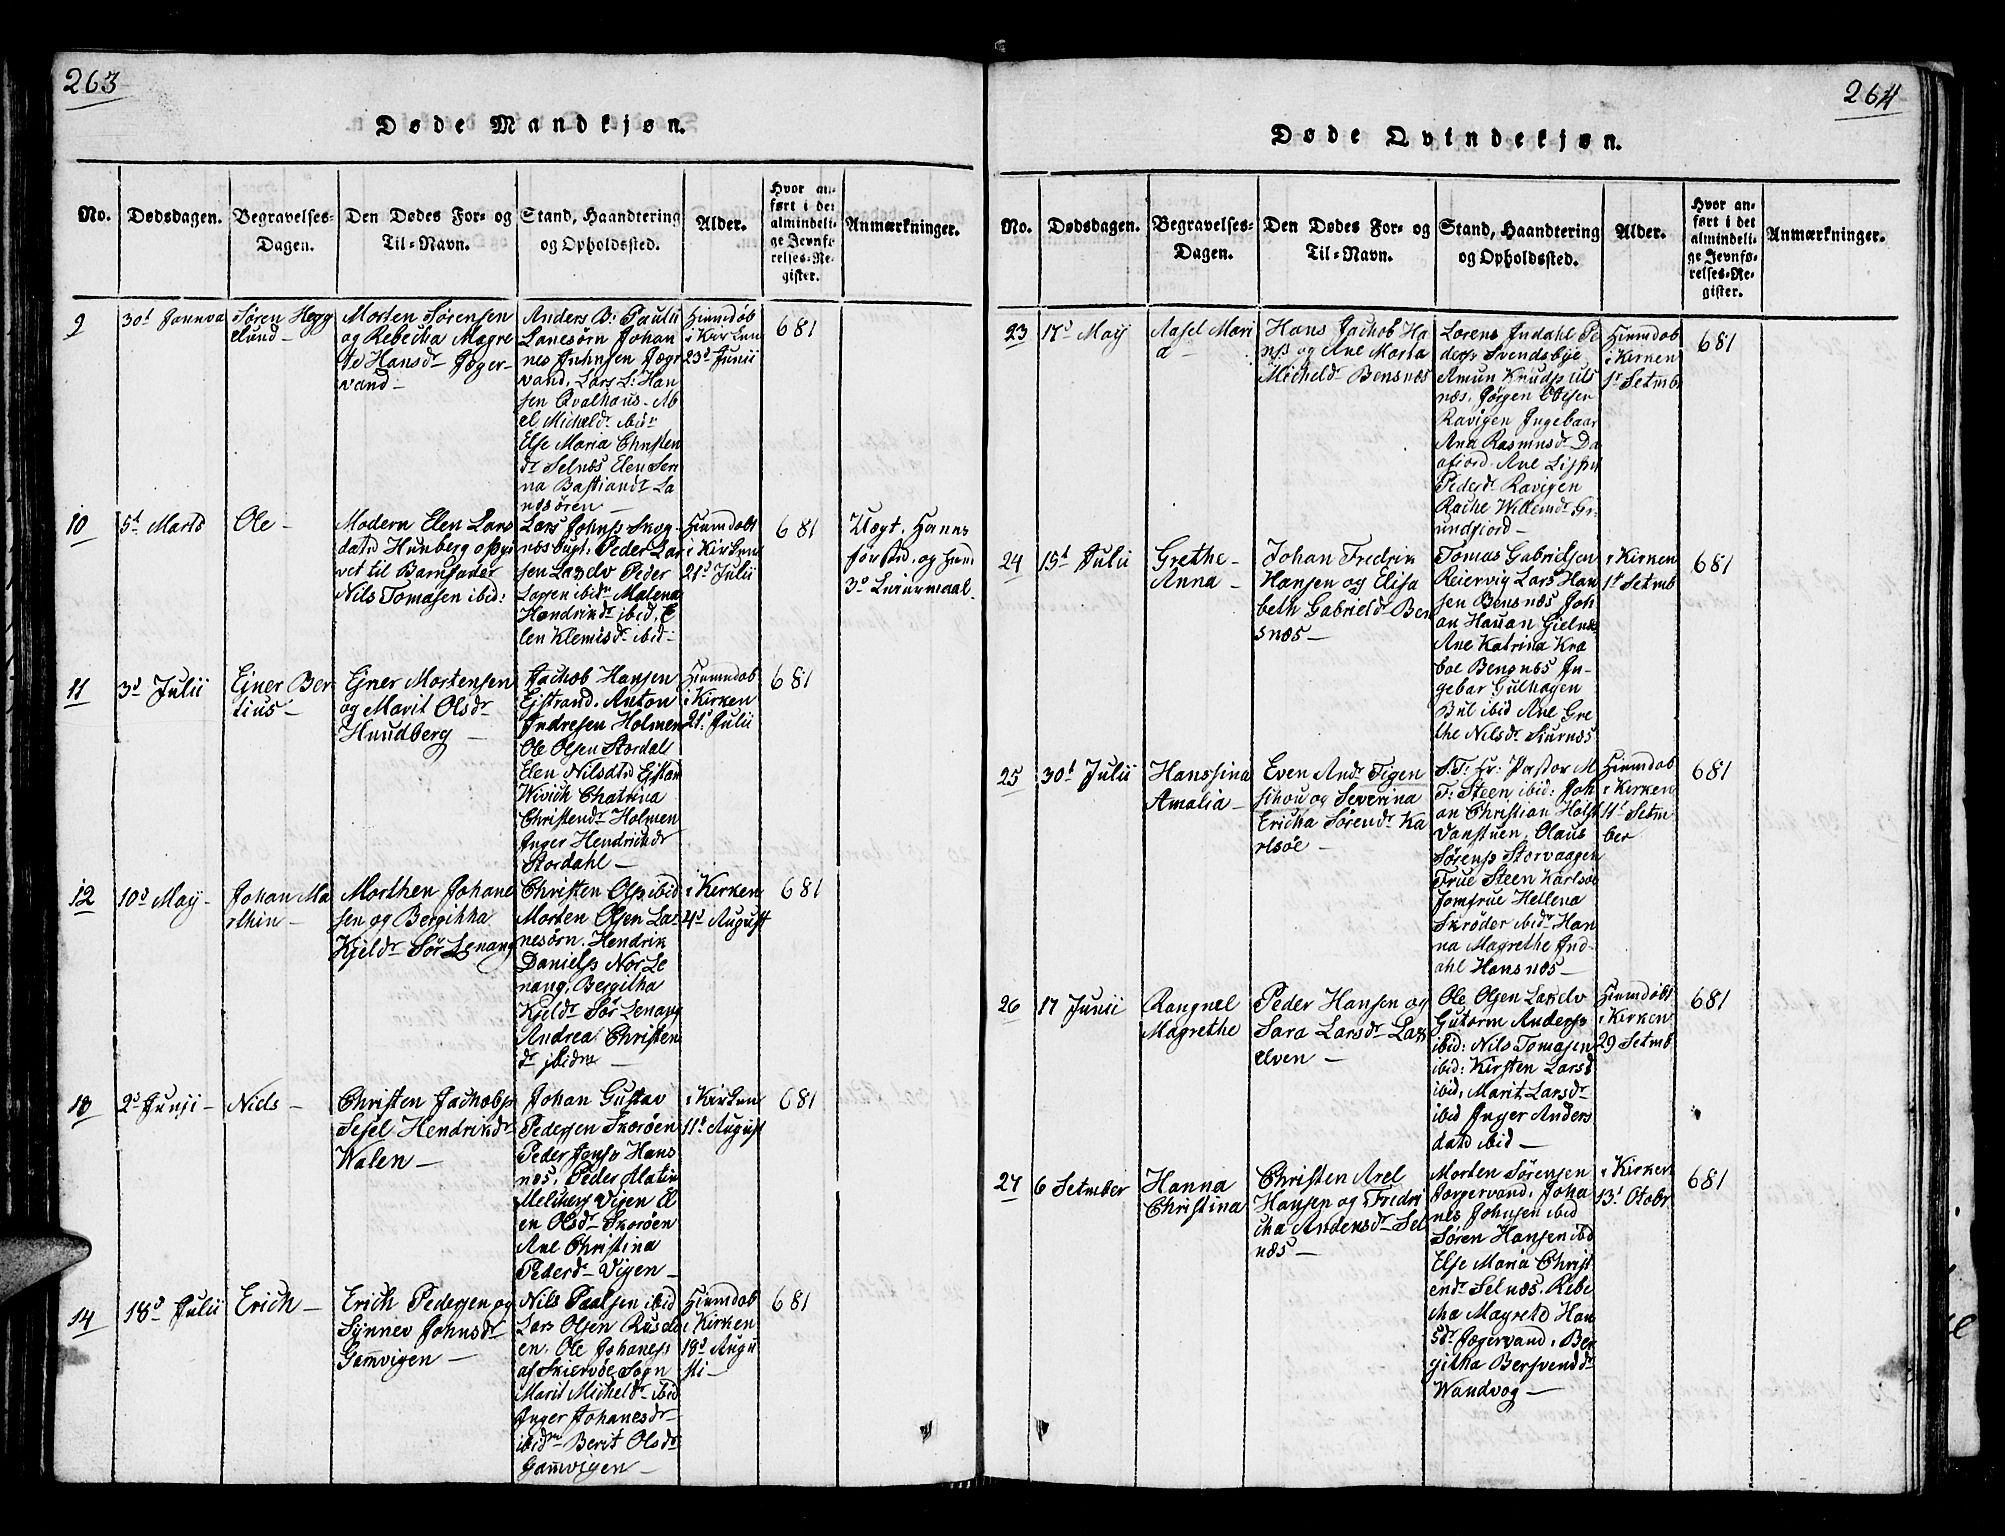 263
Døde Mandkjøn.
No.
Dødsdagen.
Begravelses-
Dagen.
Den Dødes For- og
Til-Navn.
Stand, Haandtering
og Opholdssted.
Alder.
Hvor an-
ført i det
almindeli-
ge Jevnfø-
relses-Re-
gister.
Anmærkninger.
9
30d Jannva
Søren Hegg
elund-
Morten Sørensen
og Rebecka Magre
te Hansdr Jæger-
vand-
Anders B: Paulu
Lanesørn Johan
nes Johnsen Jægr
vand, Lars L: Han
sen Qvalhous- Ab
el Micheldr ibidr
Else Maria Christen
dr Selnæs Elen Sere
na Bastiandr La
nesören-
Hiemdøb
i Kirken
23d Junii
681
10
5d Marts
Ole-
Modern Elen Lars
datr Hunberg
vet til Barnfader
Nils Tomasen ibid:
Lars Johnss Skog-
næs Peder Lar
sen Larselv Peder
Larsen ibidm Malena
Hendrikdr ibid, E
len Klemitsdr ibid-
Hiemdøbt
i Kirken
21d Julii
681
Uægt. Hannes
første, og
3d Leiermaal.
11
3d Julii
Ejner Ber
tius-
Ejner Mortensen
og Marit Olsdr
Hundberg-
Jachob Hansen
Ejstrand. Anton
Andresen Holmen
Ole Olsen Stordal
Elen Nilsdtr Ejstan
Wivich Chatrina
Christendr Holmen
Inger Hendrichdr
Stordahl-
Hiemdøb
i Kirken
21d Julii
681
12
10d May-
Johan Ma
rthin-
Morthen Johane
sen og Bergithha
Kjeldr Sør Lenang
Christen Olss ibid
Morten Olsen La-
nesørn. Hendrik
Danielss Nor Le
nang, Bergitha
Kjeldr Sør Lenang
Andrea Christen
dr ibidm-
i Kirken
4d August
681
13
2d Junji-
Niels-
Christen Jachobss
Sesel Hendrikdr
Walen-
Johan Gustav
Pedersen Skorøen
Peder Jenss Hans
næs, Peder Matin
Vigen El
en Olsdr Skorøen
Ane Christina
Pederdr Vigen-
i Kirken
11t August
681
14
18d Julii
Erich-
Erich Pedersen og
Synnev Johnsdr
Gamvigen-
Nils Paalsen ibid
Lars Olsen Rusel
en. Ole Johaness
af Skiervöe Sogn
Marit Micheldr ibid
Inger Johanesdr
ibidm Berit Olsdr
Gamvigen-
Hiemdøb
i Kirken
18d Augu
sti-
681
264
Døde Qvindekjøn.
No.
Dødsdagen.
Begravelses-
Dagen.
Den Dødes For- og
Til-Navn.
Stand, Haandtering
og Opholdssted.
Alder.
Hvor an-
ført i det
almindeli-
ge Jevnfø-
relses-Re-
gister.
Anmærkninger.
23
17d May
Aasel Mari
a-
Hans Jachob Ha
nss og Ane Marta
Micheldr Bensnæs
Lorens Indahl Pe
derss Svendsbye
Amun Knudss Uls
næs. Jørgen Olsen
Ravigen Ingebaar
Ana Rasmusdr Da
afjord. Ane Lisbet
Pedersdr Ravigen
Rache Willemdr Gr
undfjord-
Hiemdøb
i Kirken
1t Setmb
681
24
15d Julii
Grethe-
Anna-
Johan Fredrik
Hansen og Elisa
beth Gabrieldr Ben
snæs-
Tomas Gabrielsen
Reiervig Lars Han
sen Bensnæs Joh
an Hauan Gielnæs
Ane Katrina Kra
boe Bengnæs In-
gebar Gulhagen
Bul ibid Ane Gre
the Nilsdr Skarnæs
i Kirken
1t Setmb
681
25
30d Julii
Hanssina
Amalia-
Even Andr Tigen
skou og Severina
Ericka Sørendr Ka
rlsøe-
S.T: Hr: Pastor M
T: Steen ibid: Joh
an Christian Holst
Vanstuen, Olaus
Sørenss Storvaagen
Frue Steen Karlsøe
Jomfrue Hellena
Skrøder ibidr Han
na Magrethe Ind-
ahl Hansnæs-
Hiemdøb
i Kirken
11t Setm
ber
681
26
17 Junii
Rangnel
Magrethe
Peder Hansen og
Sara Larsdr Lax
elven-
Ole Olsen Laxelv
Gutorm Anderss
ibid: Nils Tomasen
ibid: Kirsten Larsd
ibid, Marit Larsdr
ibid Inger Anders
datr ibid-
Hiemdøbt
i Kirken
29 Setmb
681
27
6 Setmber
Hanna
Christina
Christen Arel
Hansen og Fredri
cka Andersdr Sel
næs-
Morten Sørensen
Jægervand, Joha
nes Johnsen ibid
Søren Hansen ibid
Else Maria Christ
endr Selnæs. Rebe
cka Magretd Han
sdr Jægervand, Ber
githa Bersvenddr
Wandvog-
i Kirken
13t Otobr
681